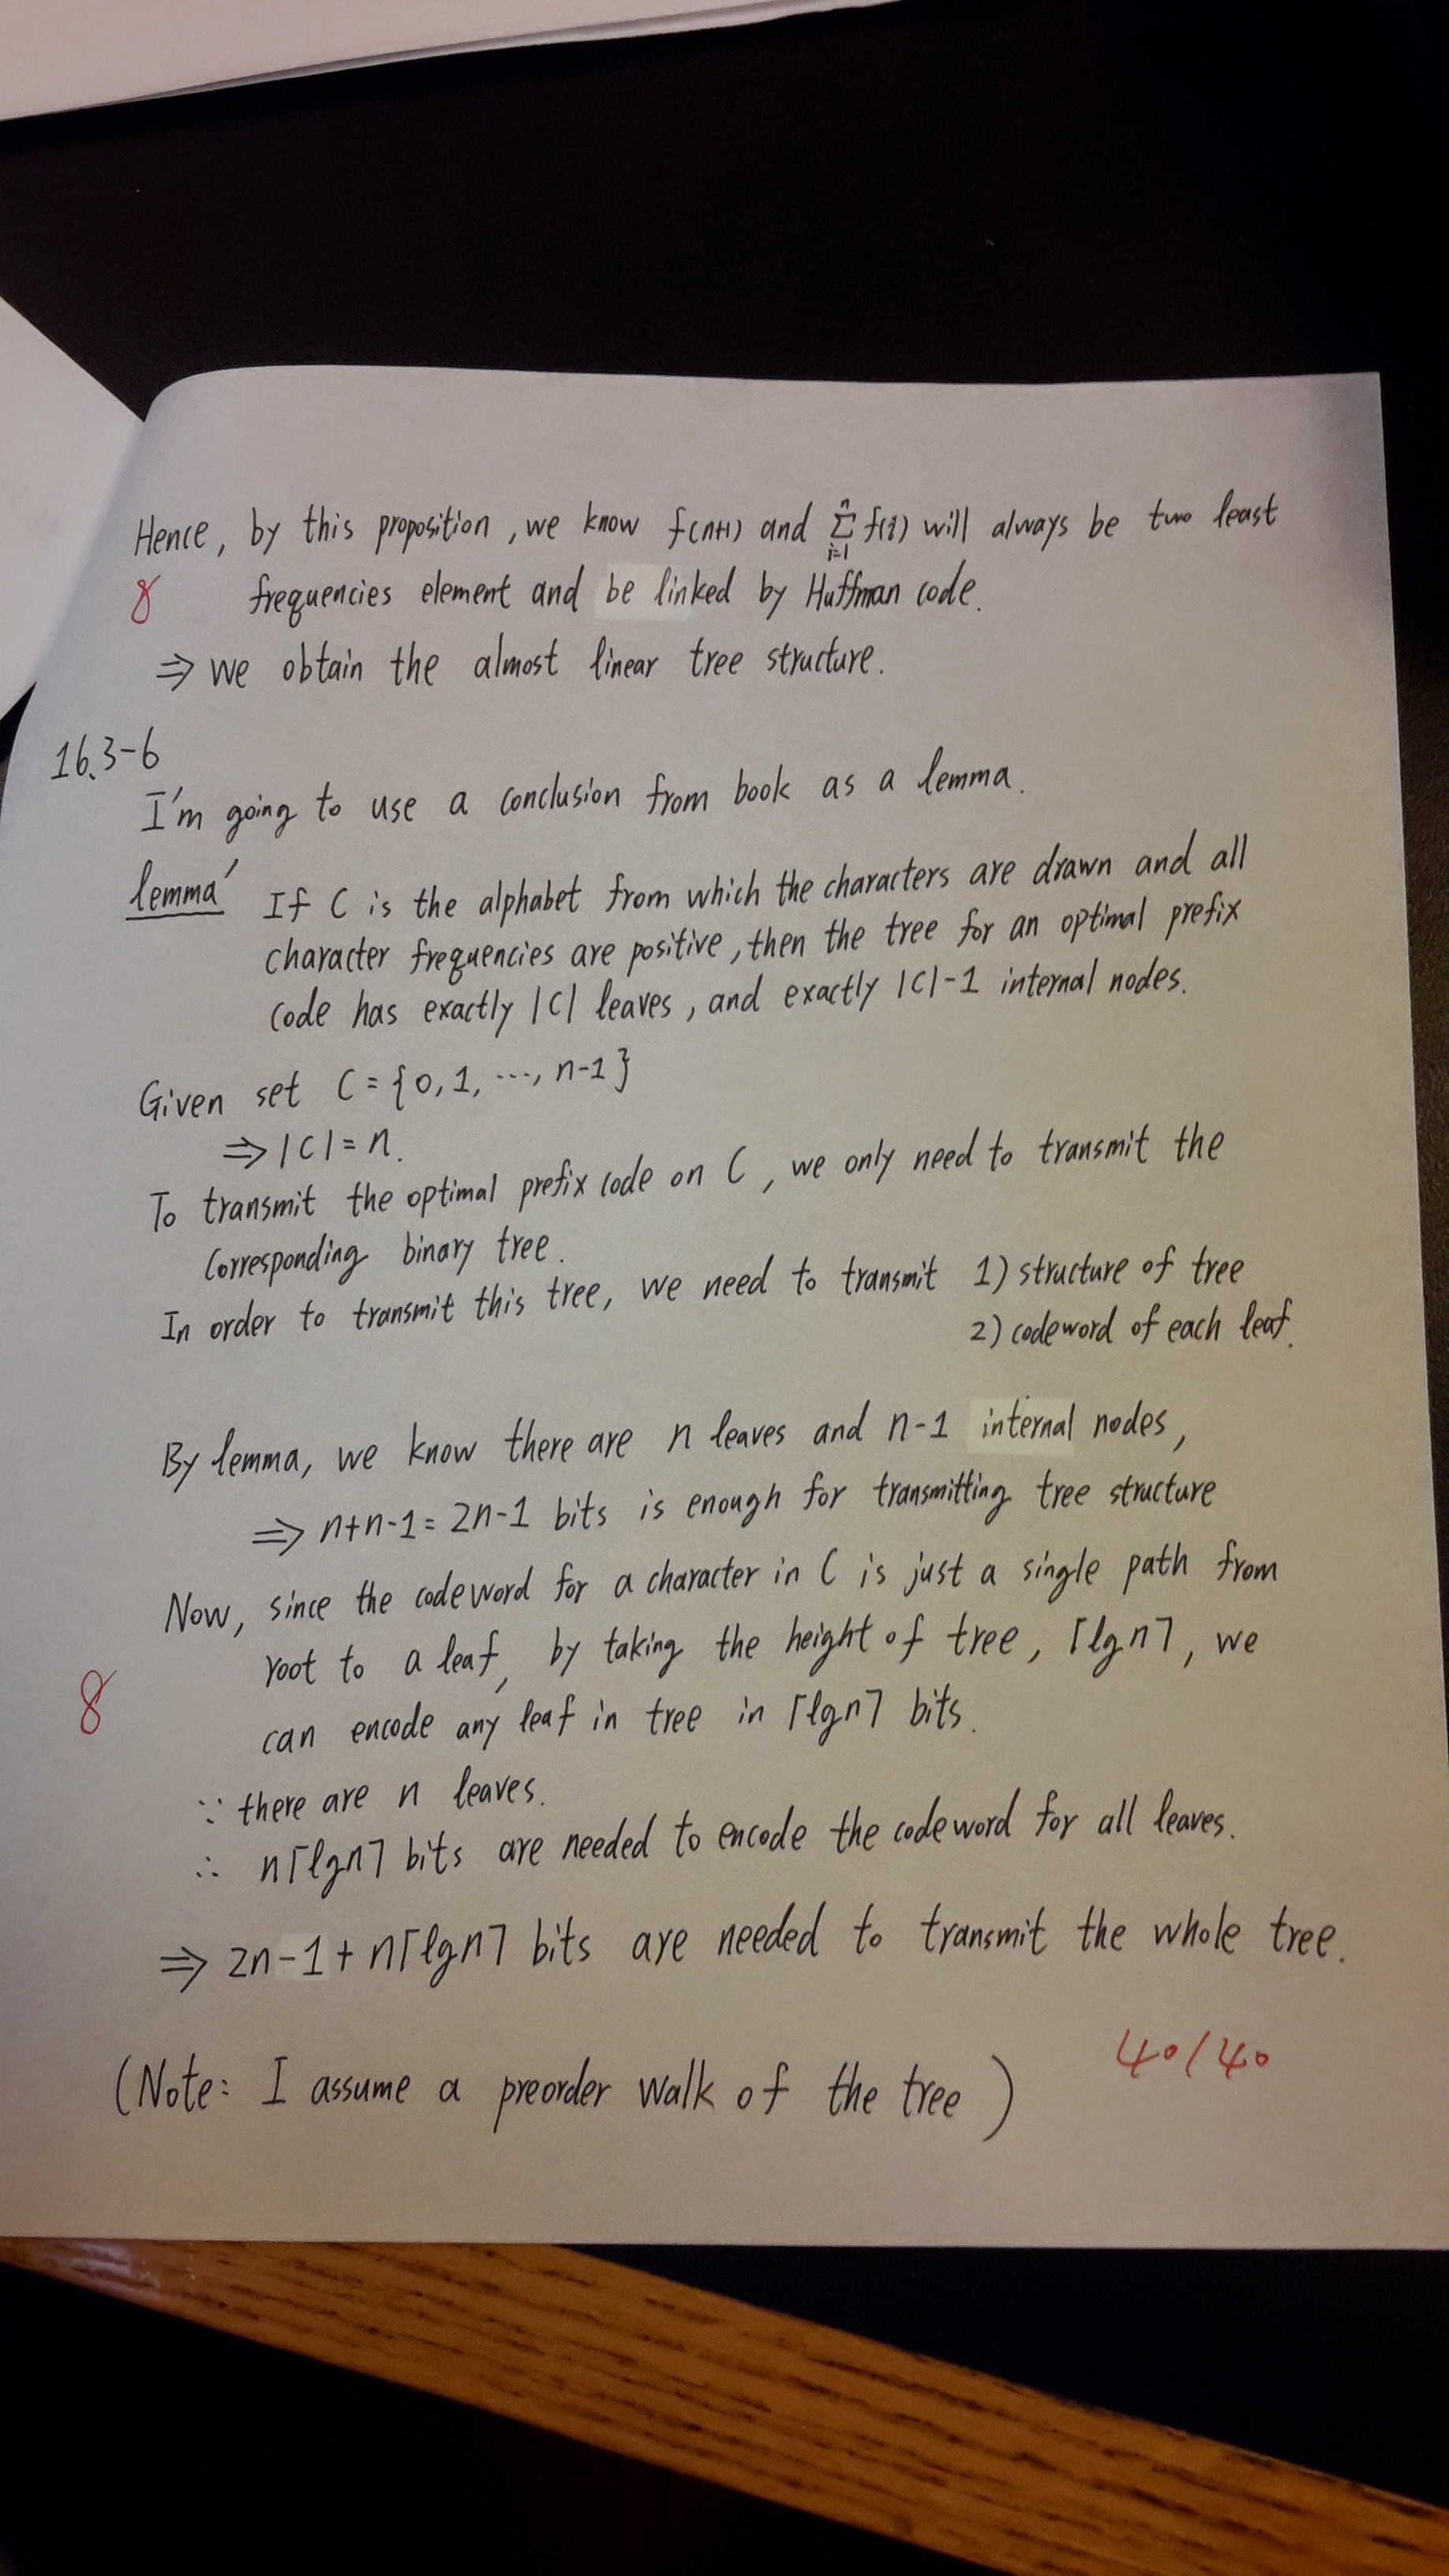 Hence, by this proposition, we know f(n+1) and ∑ⁿᵢ₌₁ f(i) will always be two least
8 frequencies element and be linked by Huffman code.
⇒ we obtain the almost linear tree structure.
16.3-6
I'm going to use a conclusion from book as a lemma.
lemma' If C is the alphabet from which the characters are drawn and all
character frequencies are positive, then the tree for an optimal prefix
code has exactly |C| leaves, and exactly |C|-1 internal nodes.
Given set C = {0, 1, ..., n-1}
⇒ |C| = n.
To transmit the optimal prefix code on C, we only need to transmit the
corresponding binary tree.
In order to transmit this tree, we need to transmit 1) structure of tree
2) codeword of each leaf.
By lemma, we know there are n leaves and n-1 internal nodes,
⇒ n+n-1 = 2n-1 bits is enough for transmitting tree structure
Now, since the codeword for a character in C is just a single path from
root to a leaf, by taking the height of tree, ⌈lgn⌉, we
8 can encode any leaf in tree in ⌈lgn⌉ bits.
∵ there are n leaves.
∴ n⌈lgn⌉ bits are needed to encode the codeword for all leaves.
⇒ 2n-1 + n⌈lgn⌉ bits are needed to transmit the whole tree.
40/40
(Note: I assume a preorder walk of the tree)